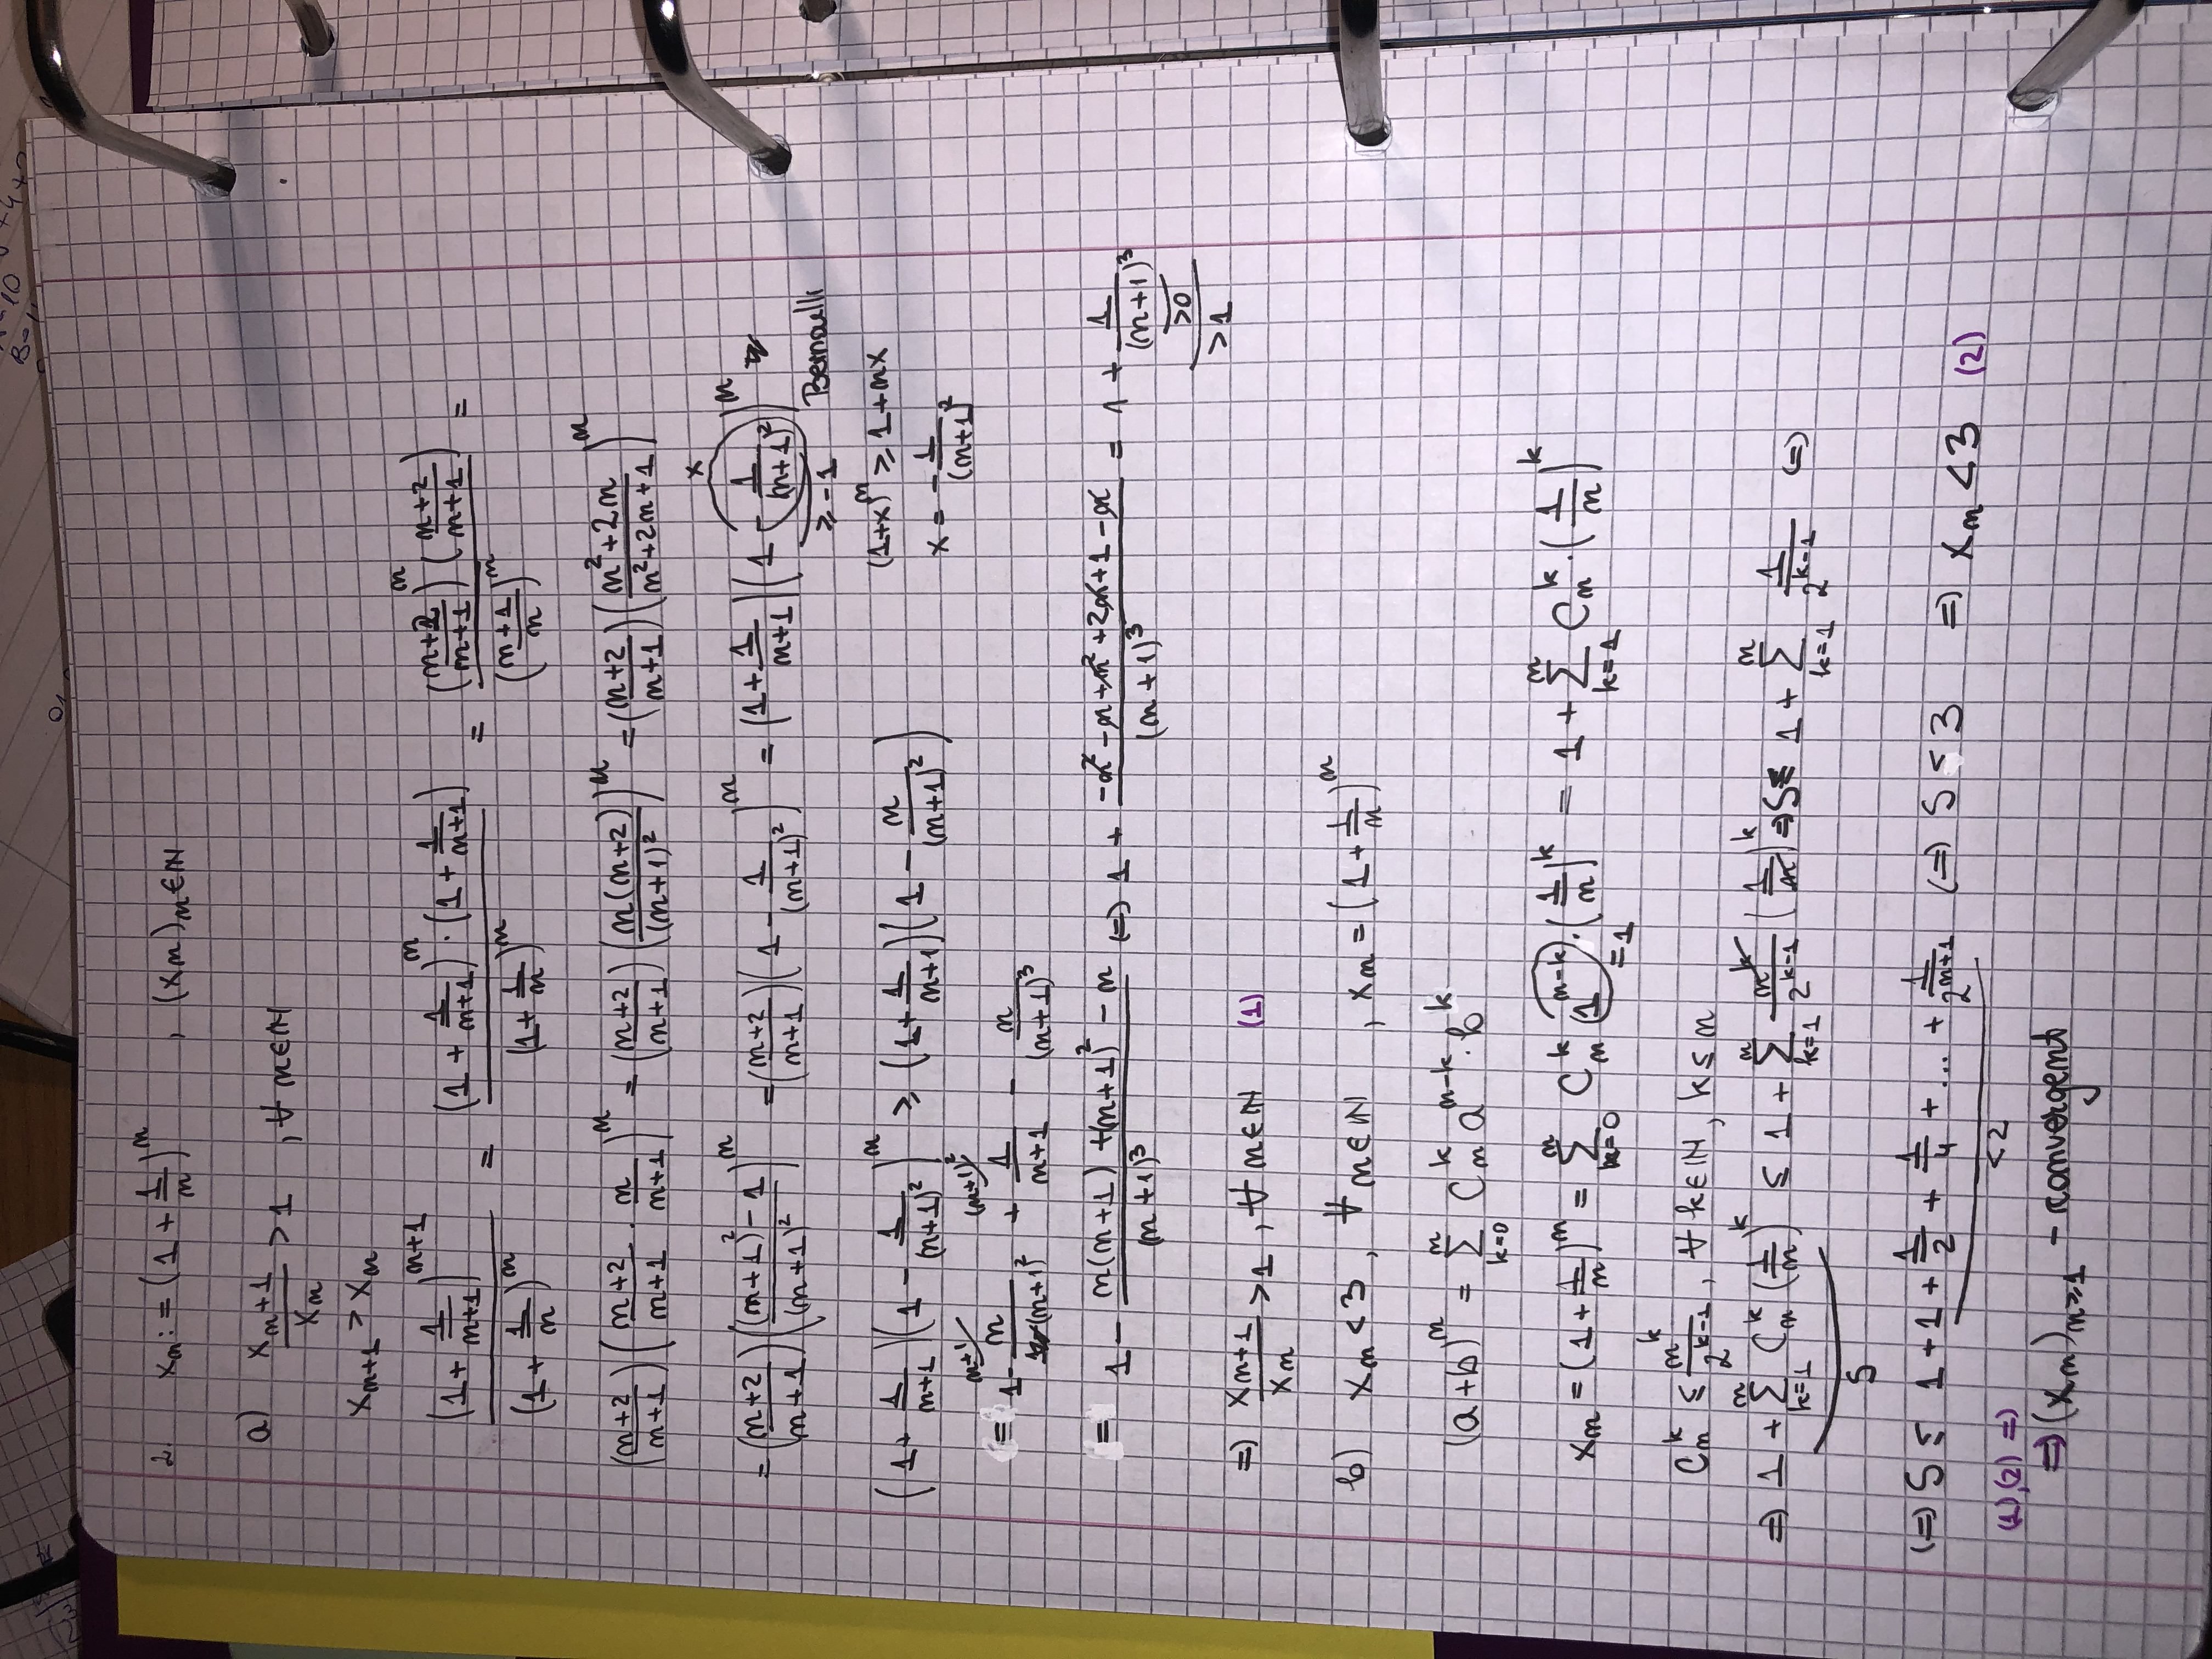 2. xₙ := (1 + 1/n)ⁿ , (xₙ)ₙ∈ℕ
a) xₙ₊₁/xₙ > 1 , ∀ n∈ℕ
xₙ₊₁ > xₙ
(1 + 1/(n+1))ⁿ⁺¹ / (1 + 1/n)ⁿ = (1 + 1/(n+1))ⁿ · (1 + 1/(n+1)) / (1 + 1/n)ⁿ = ((n+2)/(n+1))ⁿ ((n+2)/(n+1)) / ((n+1)/n)ⁿ =
((n+2)/(n+1)) ((n+2)/(n+1) · n/(n+1))ⁿ = ((n+2)/(n+1)) (n(n+2)/(n+1)²)ⁿ = ((n+2)/(n+1)) ((n²+2n)/(n²+2n+1))ⁿ
x
= ((n+2)/(n+1)) (((n+1)²-1)/(n+1)²)ⁿ = ((n+2)/(n+1)) (1 - 1/(n+1)²)ⁿ = (1 + 1/(n+1)) (1 - 1/(n+1)²)ⁿ
≥ -1 Bernoulli
(1 + 1/(n+1)) (1 - 1/(n+1)²)ⁿ ≥ (1 + 1/(n+1)) (1 - n/(n+1)²) (1+x)ⁿ ≥ 1+nx
x = -1/(n+1)²
n+1/ (n+1)²/
= 1 - n/(n+1)² + 1/(n+1) - n/(n+1)³
= 1 - (n(n+1) + (n+1)² - n)/(n+1)³ (=) 1 + (-n² - n + n² + 2n + 1 - n)/(n+1)³ = 1 + 1/(n+1)³
>0
>1
=) xₙ₊₁/xₙ > 1 , ∀ n∈ℕ (1)
b) xₙ < 3 , ∀ n∈ℕ , xₙ = (1 + 1/n)ⁿ
(a+b)ⁿ = Σ_{k=0}^{n} Cₙᵏ aⁿ⁻ᵏ · bᵏ
xₙ = (1 + 1/n)ⁿ = Σ_{k=0}^{n} Cₙᵏ 1ⁿ⁻ᵏ · (1/n)ᵏ = 1 + Σ_{k=1}^{n} Cₙᵏ · (1/n)ᵏ
=1
Cₙᵏ ≤ nᵏ/2ᵏ⁻¹ , ∀ k∈ℕ, k ≤ n
=) 1 + Σ_{k=1}^{n} Cₙᵏ (1/n)ᵏ ≤ 1 + Σ_{k=1}^{n} nᵏ/2ᵏ⁻¹ (1/n)ᵏ => S ≤ 1 + Σ_{k=1}^{n} 1/2ᵏ⁻¹ (=)
S
(=) S ≤ 1 + 1 + 1/2 + 1/4 + ... + 1/2ⁿ⁺¹ (=) S < 3 =) xₙ < 3 (2)
< 2
(1),(2) =)
=) (xₙ)ₙ≥₁ - convergent